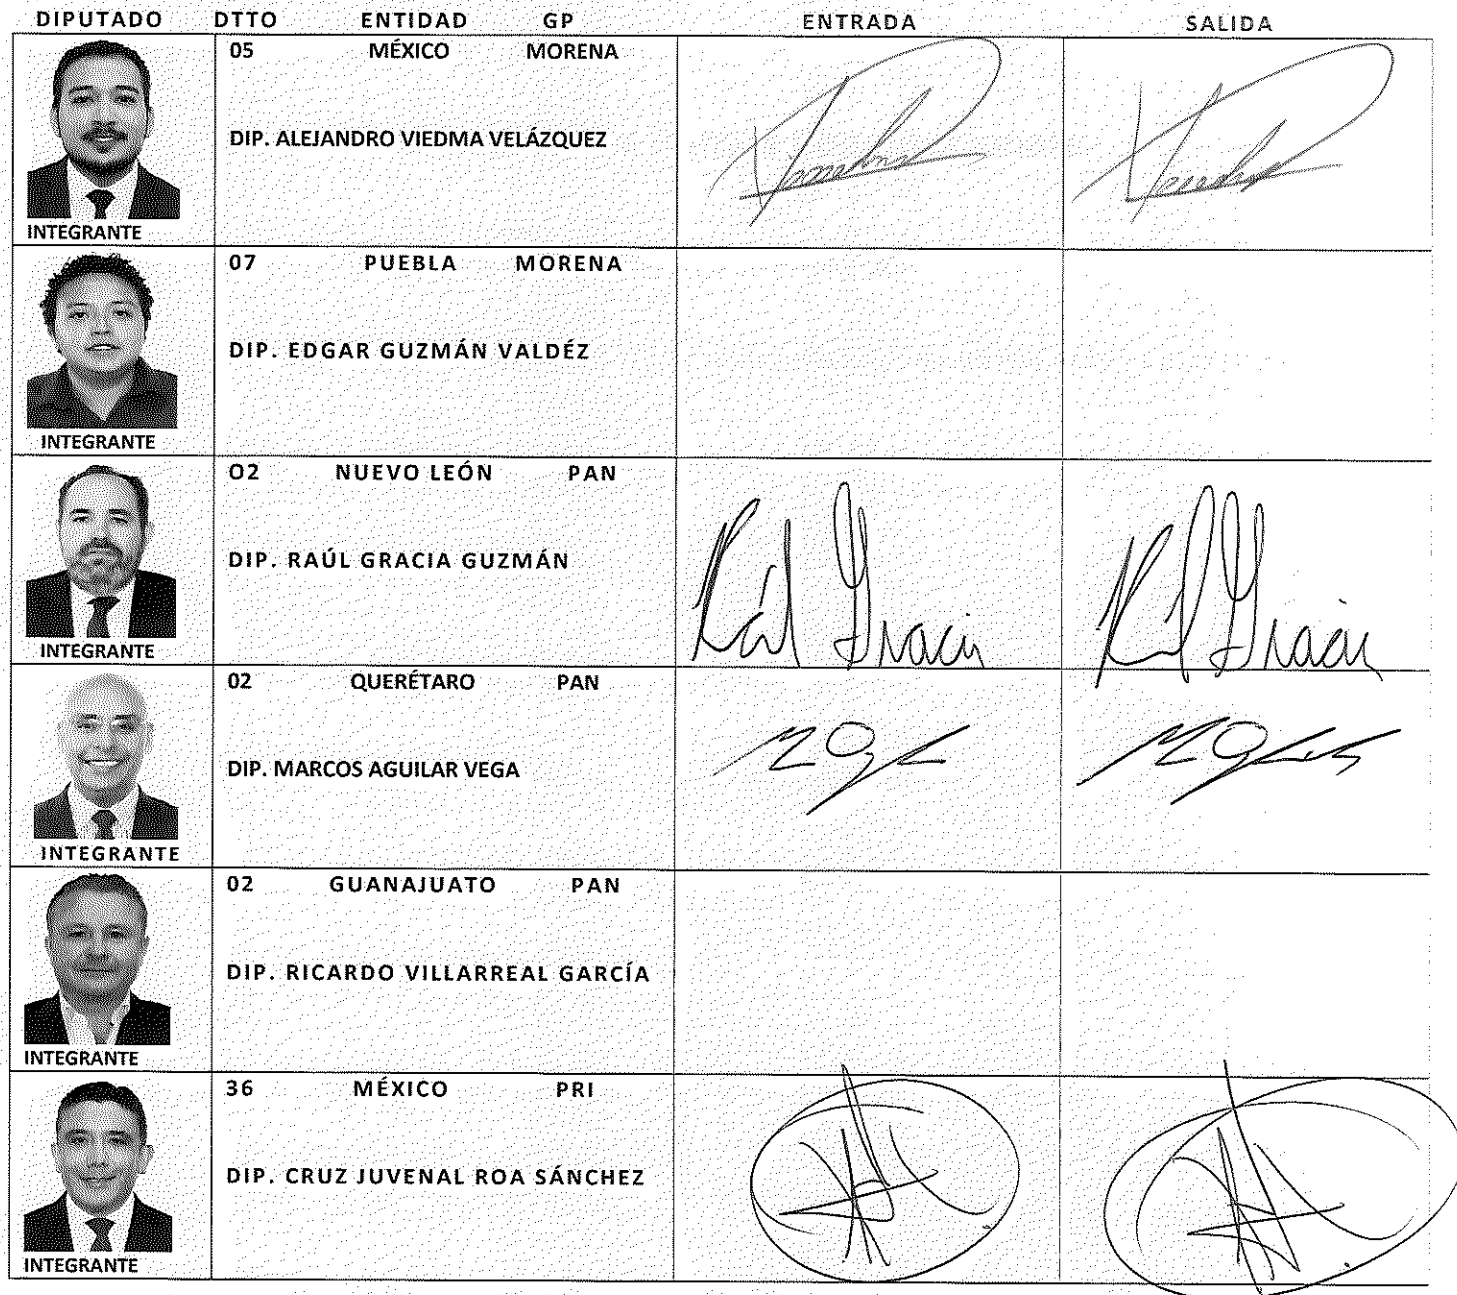 DIPUTADO DTTO ENTIDAD GP ENTRADA SALIDA
05 MÉXICO MORENA
DIP. ALEJANDRO VIEDMA VELÁZQUEZ
INTEGRANTE
07 PUEBLA MORENA
DIP. EDGAR GUZMÁN VALDÉZ
INTEGRANTE
O2 NUEVO LEÓN PAN
DIP. RAÚL GRACIA GUZMÁN
Raúl Gracia Raúl Gracia
INTEGRANTE
02 QUERÉTARO PAN
DIP. MARCOS AGUILAR VEGA
INTEGRANTE
02 GUANAJUATO PAN
DIP. RICARDO VILLARREAL GARCÍA
INTEGRANTE
36 MÉXICO PRI
DIP. CRUZ JUVENAL ROA SÁNCHEZ
INTEGRANTE